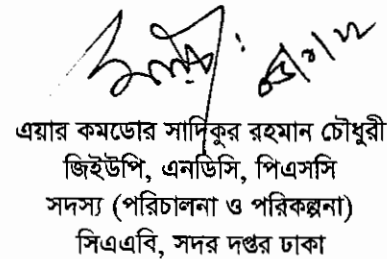 এয়ার কমডোর সাদিকুর রহমান চৌধুরী
জিইউপি, এনডিসি, পিএসসি
সদস্য (পরিচালনা ও পরিকল্পনা)
সিএএবি, সদর দপ্তর ঢাকা